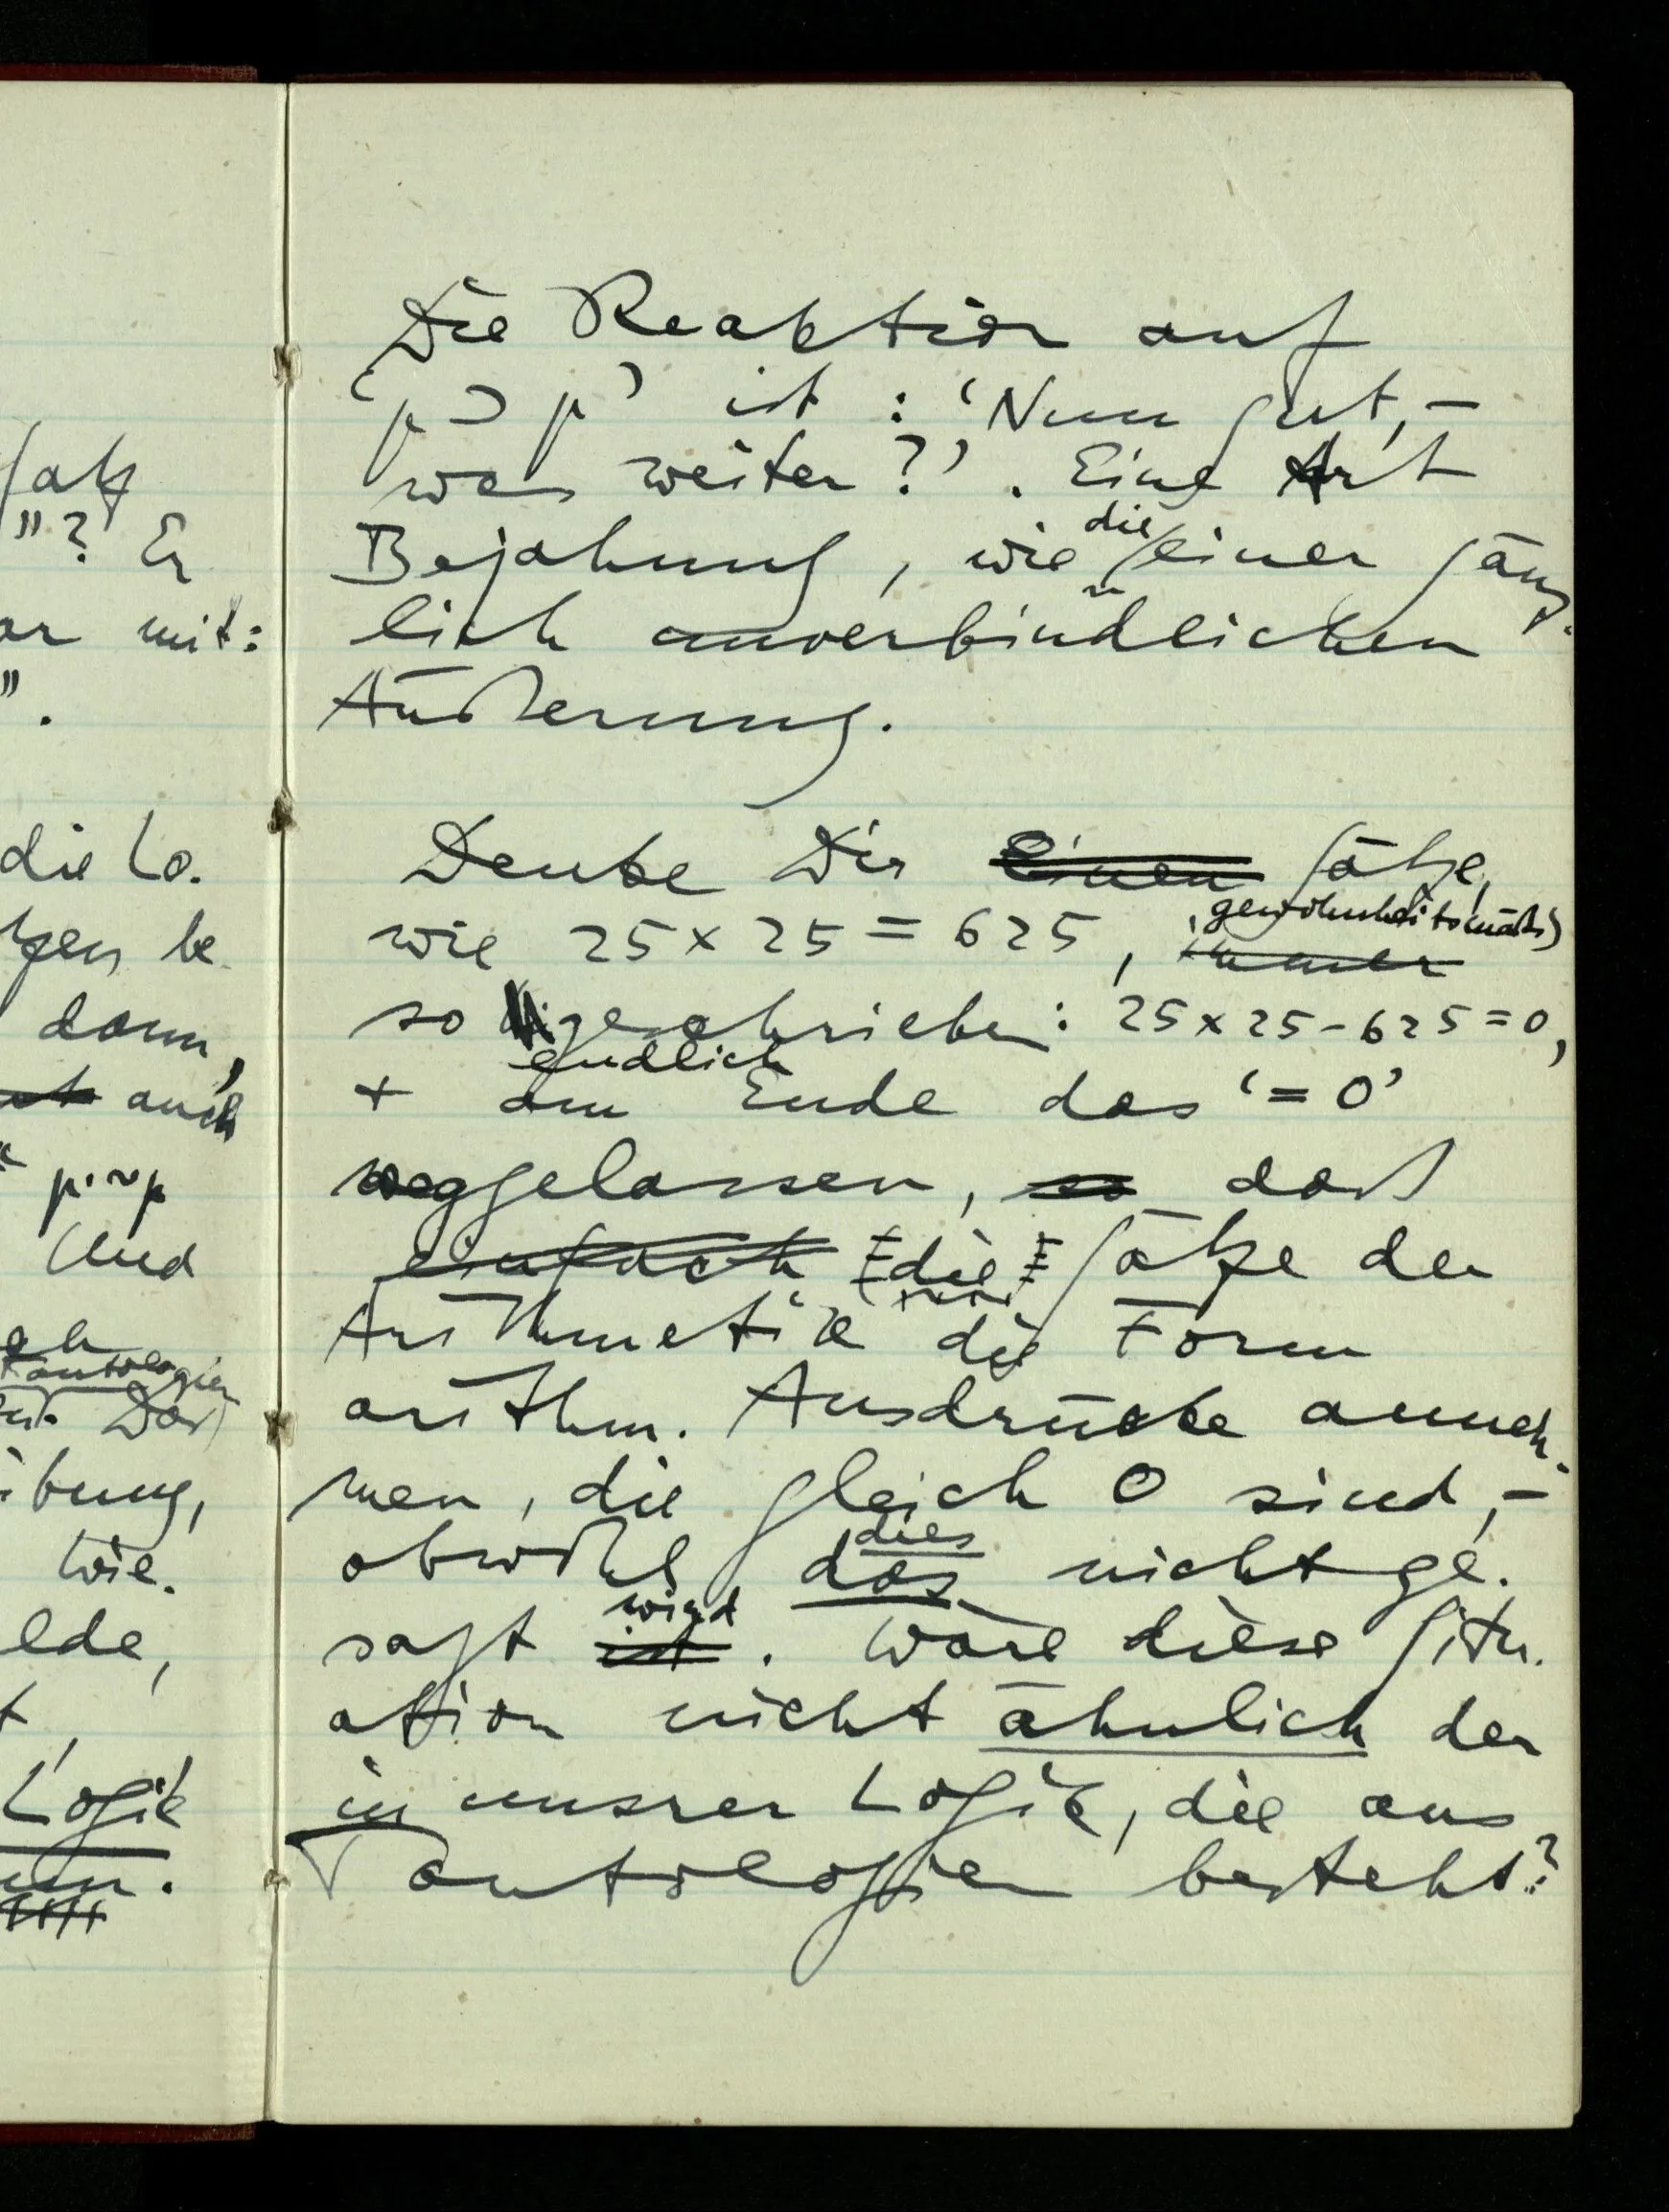 Satz
"? Er
ar mit:
".
die Lo-
tzen be
dann,
auch
p.~p
Und
Tautologien
Das
ibung,
wie.
elde,
t,
Logik
Die Reaktion auf
‘p ⊃ p’ ist: ‘Nun gut, –
was weiter?’. Eine Art
Bejahung, wie die einer gänz-
lich unverbindlichen
Äußerung.
Denke Dir einen Sätze,
wie 25 x 25 = 625, gewohnheitsmäßig
immer
so geschrieben: 25 x 25 - 625 = 0,
endlich
+ am Ende das ‘= 0’
weggelassen, so daß
einfach die Sätze der
Arithmetik die Form
arithm. Ausdrücke anneh-
men, die gleich 0 sind, –
obwohl das dies nicht ge-
sagt ist wird. Wäre diese Situ-
ation nicht ähnlich der
in unsrer Logik, die aus
Tautologien besteht?